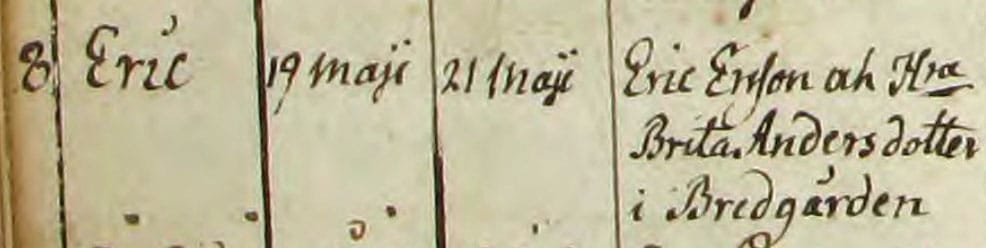 8. Eric 19 Maji 21 Maji Eric Ersson och H<u>ra</u>
Brita Anders dotter
i Bredgården